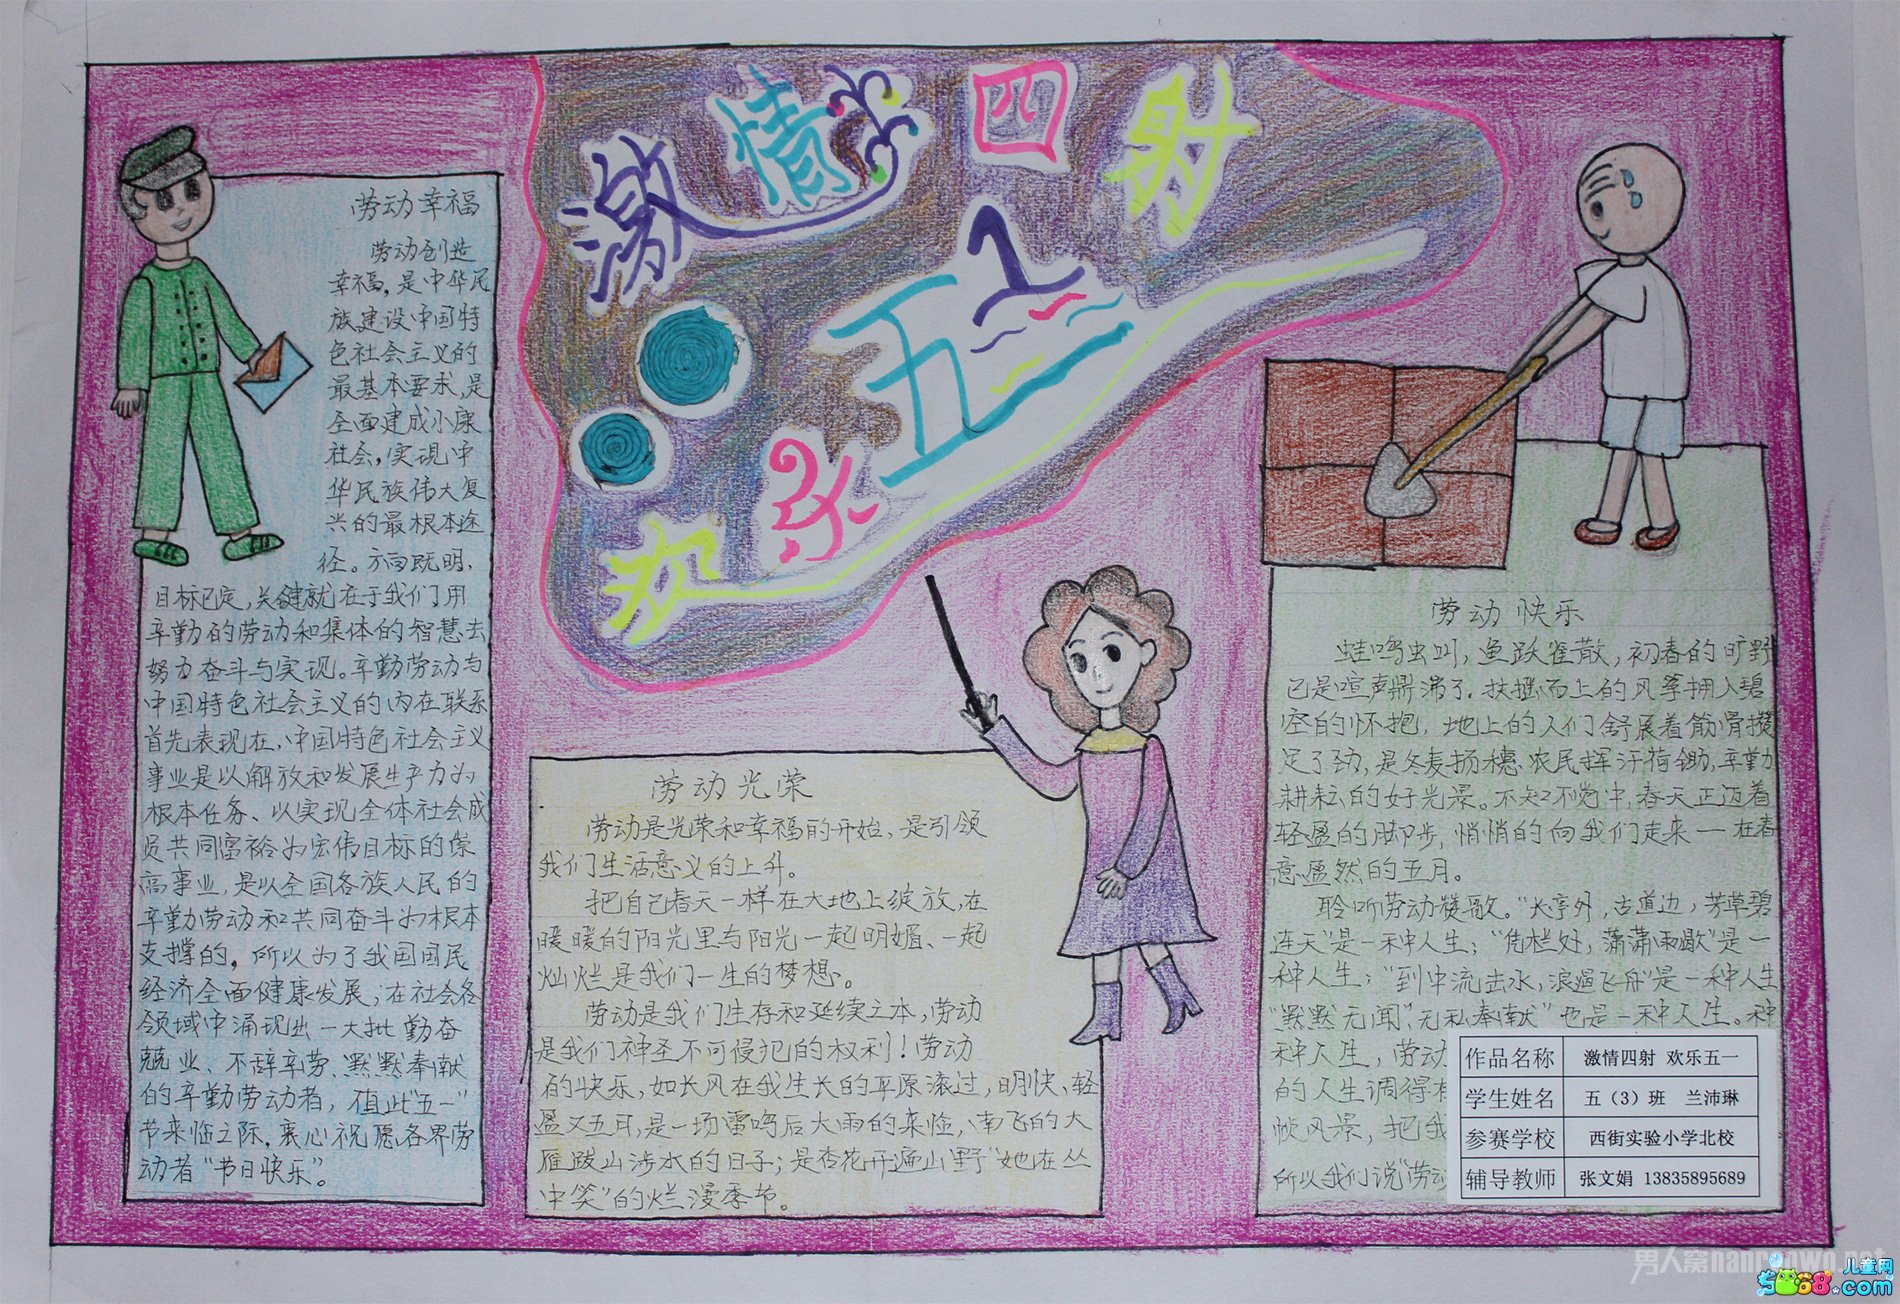 激情四射
欢乐五一
劳动幸福
劳动创造
幸福，是中华民
族建设中国特
色社会主义的
最基本要求，是
全面建成小康
社会，实现中
华民族伟大复
兴的最根本途
径。方向既明，
目标已定，关键就在于我们用
辛勤的劳动和集体的智慧去
努力奋斗与实现。辛勤劳动与
中国特色社会主义的内在联系
首先表现在，中国特色社会主义
事业是以解放和发展生产力为
根本任务、以实现全体社会成
员共同富裕为宏伟目标的崇
高事业，是以全国各族人民的
辛勤劳动和共同奋斗为根本
支撑的。所以为了我国国民
经济全面健康发展，在社会各
领域中涌现出一大批勤奋
兢业、不辞辛劳、默默奉献
的辛勤劳动者，值此"五一"
节来临之际，衷心祝愿各界劳
动者"节日快乐"。
劳动光荣
劳动是光荣和幸福的开始，是引领
我们生活意义的上升。
把自己春天一样在大地上绽放，在
暖暖的阳光里与阳光一起明媚、一起
灿烂是我们一生的梦想。
劳动是我们生存和延续之本，劳动
是我们神圣不可侵犯的权利！劳动
的快乐，如长风在我生长的平原滚过，明快、轻
盈又五月，是一场雷鸣后大雨的来临，南飞的大
雁跋山涉水的日子；是杏花开遍山野"她在丛
中笑"的烂漫季节。
劳动快乐
蛙鸣虫叫，鱼跃雀散，初春的旷野
已是喧声鼎沸了。扶摇而上的风筝拥入碧
空的怀抱，地上的人们舒展着筋骨攒
足了劲，是冬麦扬穗、农民挥汗荷锄，辛勤
耕耘的好光景。不知不觉中，春天正迈着
轻盈的脚步，悄悄的向我们走来——在春
意盈然的五月。
聆听劳动赞歌。"长亭外，古道边，芳草碧
连天"是一种人生；"凭栏处，潇潇雨歇"是一
种人生；"到中流击水，浪遏飞舟"是一种人生
"默默无闻"，无私奉献"也是一种人生。种
种人生，劳动
的人生调得有
帧风景，把我
所以我们说"劳动
作品名称 激情四射 欢乐五一
学生姓名 五（3）班 兰沛琳
参赛学校 西街实验小学北校
辅导教师 张文娟 13835895689
男人窝nanrenwo.net
5068儿童网
.com